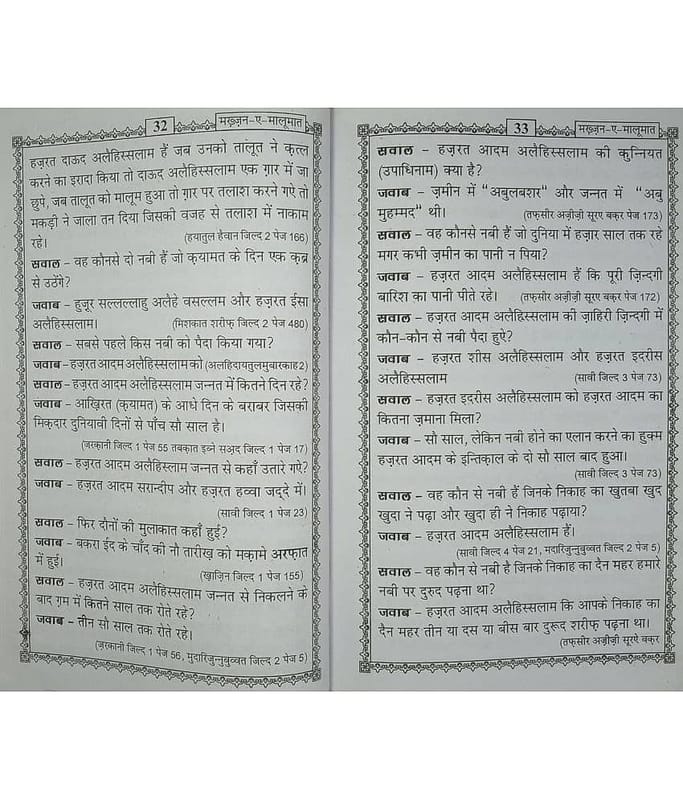 32
मख़्ज़न-ए-मालूमात
हज़रत दाऊद अलैहिस्सलाम हैं जब उनको तालूत ने क़त्ल
करने का इरादा किया तो दाऊद अलैहिस्सलाम एक ग़ार में जा
छुपे, जब तालूत को मालूम हुआ तो ग़ार पर तलाश करने गए तो
मकड़ी ने जाला तन दिया जिसकी वजह से तलाश में नाकाम
रहे।
(हयातुल हैवान जिल्द 2 पेज 166)
सवाल – वह कौनसे दो नबी हैं जो क़यामत के दिन एक क़ब्र
से उठेंगे?
जवाब – हुज़ूर सल्लल्लाहु अलेहे वसल्लम और हज़रत ईसा
अलैहिस्सलाम।
(मिशकात शरीफ़ जिल्द 2 पेज 480)
सवाल – सबसे पहले किस नबी को पैदा किया गया?
जवाब – हज़रत आदम अलैहिस्सलाम को (अलहिदायतुलमुबारकाह 2)
सवाल – हज़रत आदम अलैहिस्सलाम जन्नत में कितने दिन रहे?
जवाब – आख़िरत (क़यामत) के आधे दिन के बराबर जिसकी
मिक़दार दुनियावी दिनों से पाँच सौ साल है।
(ज़रक़ानी जिल्द 1 पेज 55 तबक़ात इब्ने सअ़द जिल्द 1 पेज 17)
सवाल – हज़रत आदम अलैहिस्लाम जन्नत से कहाँ उतारे गए?
जवाब – हज़रत आदम सरान्दीप और हज़रत हव्वा जद्दे में।
(सावी जिल्द 1 पेज 23)
सवाल – फिर दौनों की मुलाक़ात कहाँ हुई?
जवाब – बकरा ईद के चाँद की नौ तारीख़ को मक़ामे अरफ़ात
में हुई।
(ख़ाज़िन जिल्द 1 पेज 155)
सवाल – हज़रत आदम अलैहिस्सलाम जन्नत से निकलने के
बाद ग़म में कितने साल तक रोते रहे?
जवाब – तीन सौ साल तक रोते रहे।
(ज़रक़ानी जिल्द 1 पेज 56, मुदारिजुन्नुबुव्वत जिल्द 2 पेज 5)
33
मख़्ज़न-ए-मालूमात
सवाल – हज़रत आदम अलैहिस्सलाम की कुन्नियत
(उपाधिनाम) क्या है?
जवाब – ज़मीन में "अबुलबशर" और जन्नत में "अबु
मुहम्मद" थी।
(तफ़्सीर अज़ीज़ी सूरए बक़र पेज 173)
सवाल – वह कौनसे नबी हैं जो दुनिया में हज़ार साल तक रहे
मगर कभी ज़मीन का पानी न पिया?
जवाब – हज़रत आदम अलैहिस्सलाम हैं कि पूरी ज़िन्दगी
बारिश का पानी पीते रहे।
(तफ़्सीर अज़ीज़ी सूरए बक़र पेज 172)
सवाल – हज़रत आदम अलैहिस्सलाम की ज़ाहिरी ज़िन्दगी में
कौन-कौन से नबी पैदा हुऐ?
जवाब – हज़रत शीस अलैहिस्सलाम और हज़रत इदरीस
अलैहिस्सलाम
(सावी जिल्द 3 पेज 73)
सवाल – हज़रत इदरीस अलैहिस्सलाम को हज़रत आदम का
कितना ज़माना मिला?
जवाब – सौ साल, लेकिन नबी होने का एलान करने का हुक्म
हज़रत आदम के इन्तिक़ाल के दो सौ साल बाद हुआ।
(सावी जिल्द 3 पेज 73)
सवाल – वह कौन से नबी हैं जिनके निकाह का ख़ुतबा ख़ुद
ख़ुदा ने पढ़ा और ख़ुदा ही ने निकाह पढ़ाया?
जवाब – हज़रत आदम अलैहिस्सलाम हैं।
(सावी जिल्द 4 पेज 21, मदारिजुन्नुबुव्वत जिल्द 2 पेज 5)
सवाल – वह कौन से नबी है जिनके निकाह का दैन महर हमारे
नबी पर दुरुद पढ़ना था?
जवाब – हज़रत आदम अलैहिस्सलाम कि आपके निकाह का
दैन महर तीन या दस या बीस बार दुरूद शरीफ़ पढ़ना था।
(तफ़्सीर अज़ीज़ी सूरऐ बक़र